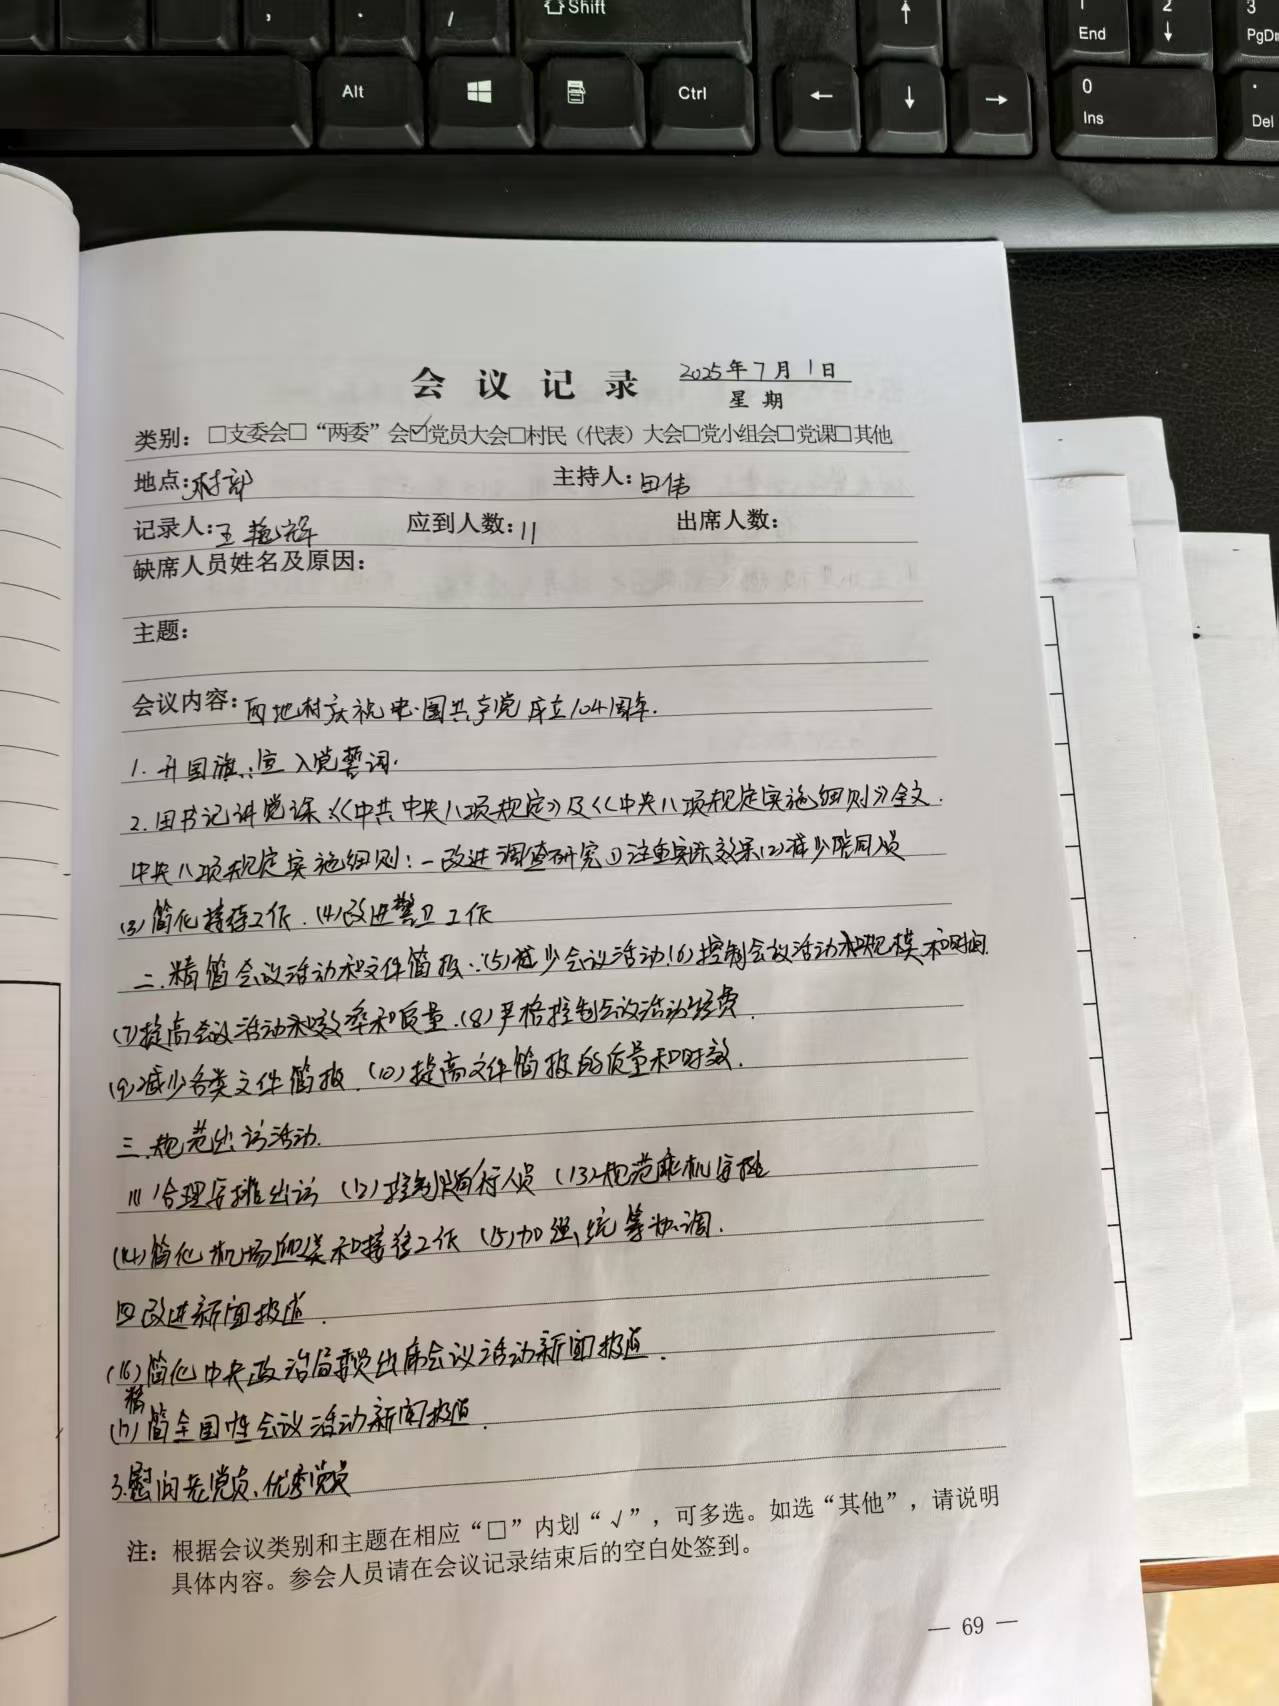 , . / Shift ↑ 1 End 2 ↓ 3
Alt Ctrl ← ↓ → 0 Ins . Del
会议记录 2025年7月1日
星期
类别：□支委会□“两委”会☑党员大会□村民（代表）大会□党小组会□党课□其他
地点：村部 主持人：田伟
记录人：王艳辉 应到人数：11 出席人数：
缺席人员姓名及原因：
主题：
会议内容：西地村庆祝中国共产党成立104周年.
1.升国旗:宣入党誓词.
2.田书记讲党课《中共中央八项规定》及《中央八项规定实施细则》全文.
中央八项规定实施细则:一改进调查研究(1)注重实际效果(2)减少陪同人员
(3)简化接待工作.(4)改进警卫工作
二.精简会议活动和文件简报:(5)减少会议活动(6)控制会议活动和规模和时间.
(7)提高会议活动和效率和质量.(8)严格控制会议活动经费.
(9)减少各类文件简报.(10)提高文件简报的质量和时效.
三.规范出访活动.
(11)合理安排出访 (12)控制陪同行人员 (13)规范乘机安排
(14)简化机场迎送和接待工作 (15)加强统筹协调.
四改进新闻报道.
(16)简化中央政治局委员出席会议活动新闻报道.
(17)精简全国性会议活动新闻报道.
3.慰问老党员、优秀党员
注：根据会议类别和主题在相应“□”内划“√”，可多选。如选“其他”，请说明
具体内容。参会人员请在会议记录结束后的空白处签到。
— 69 —